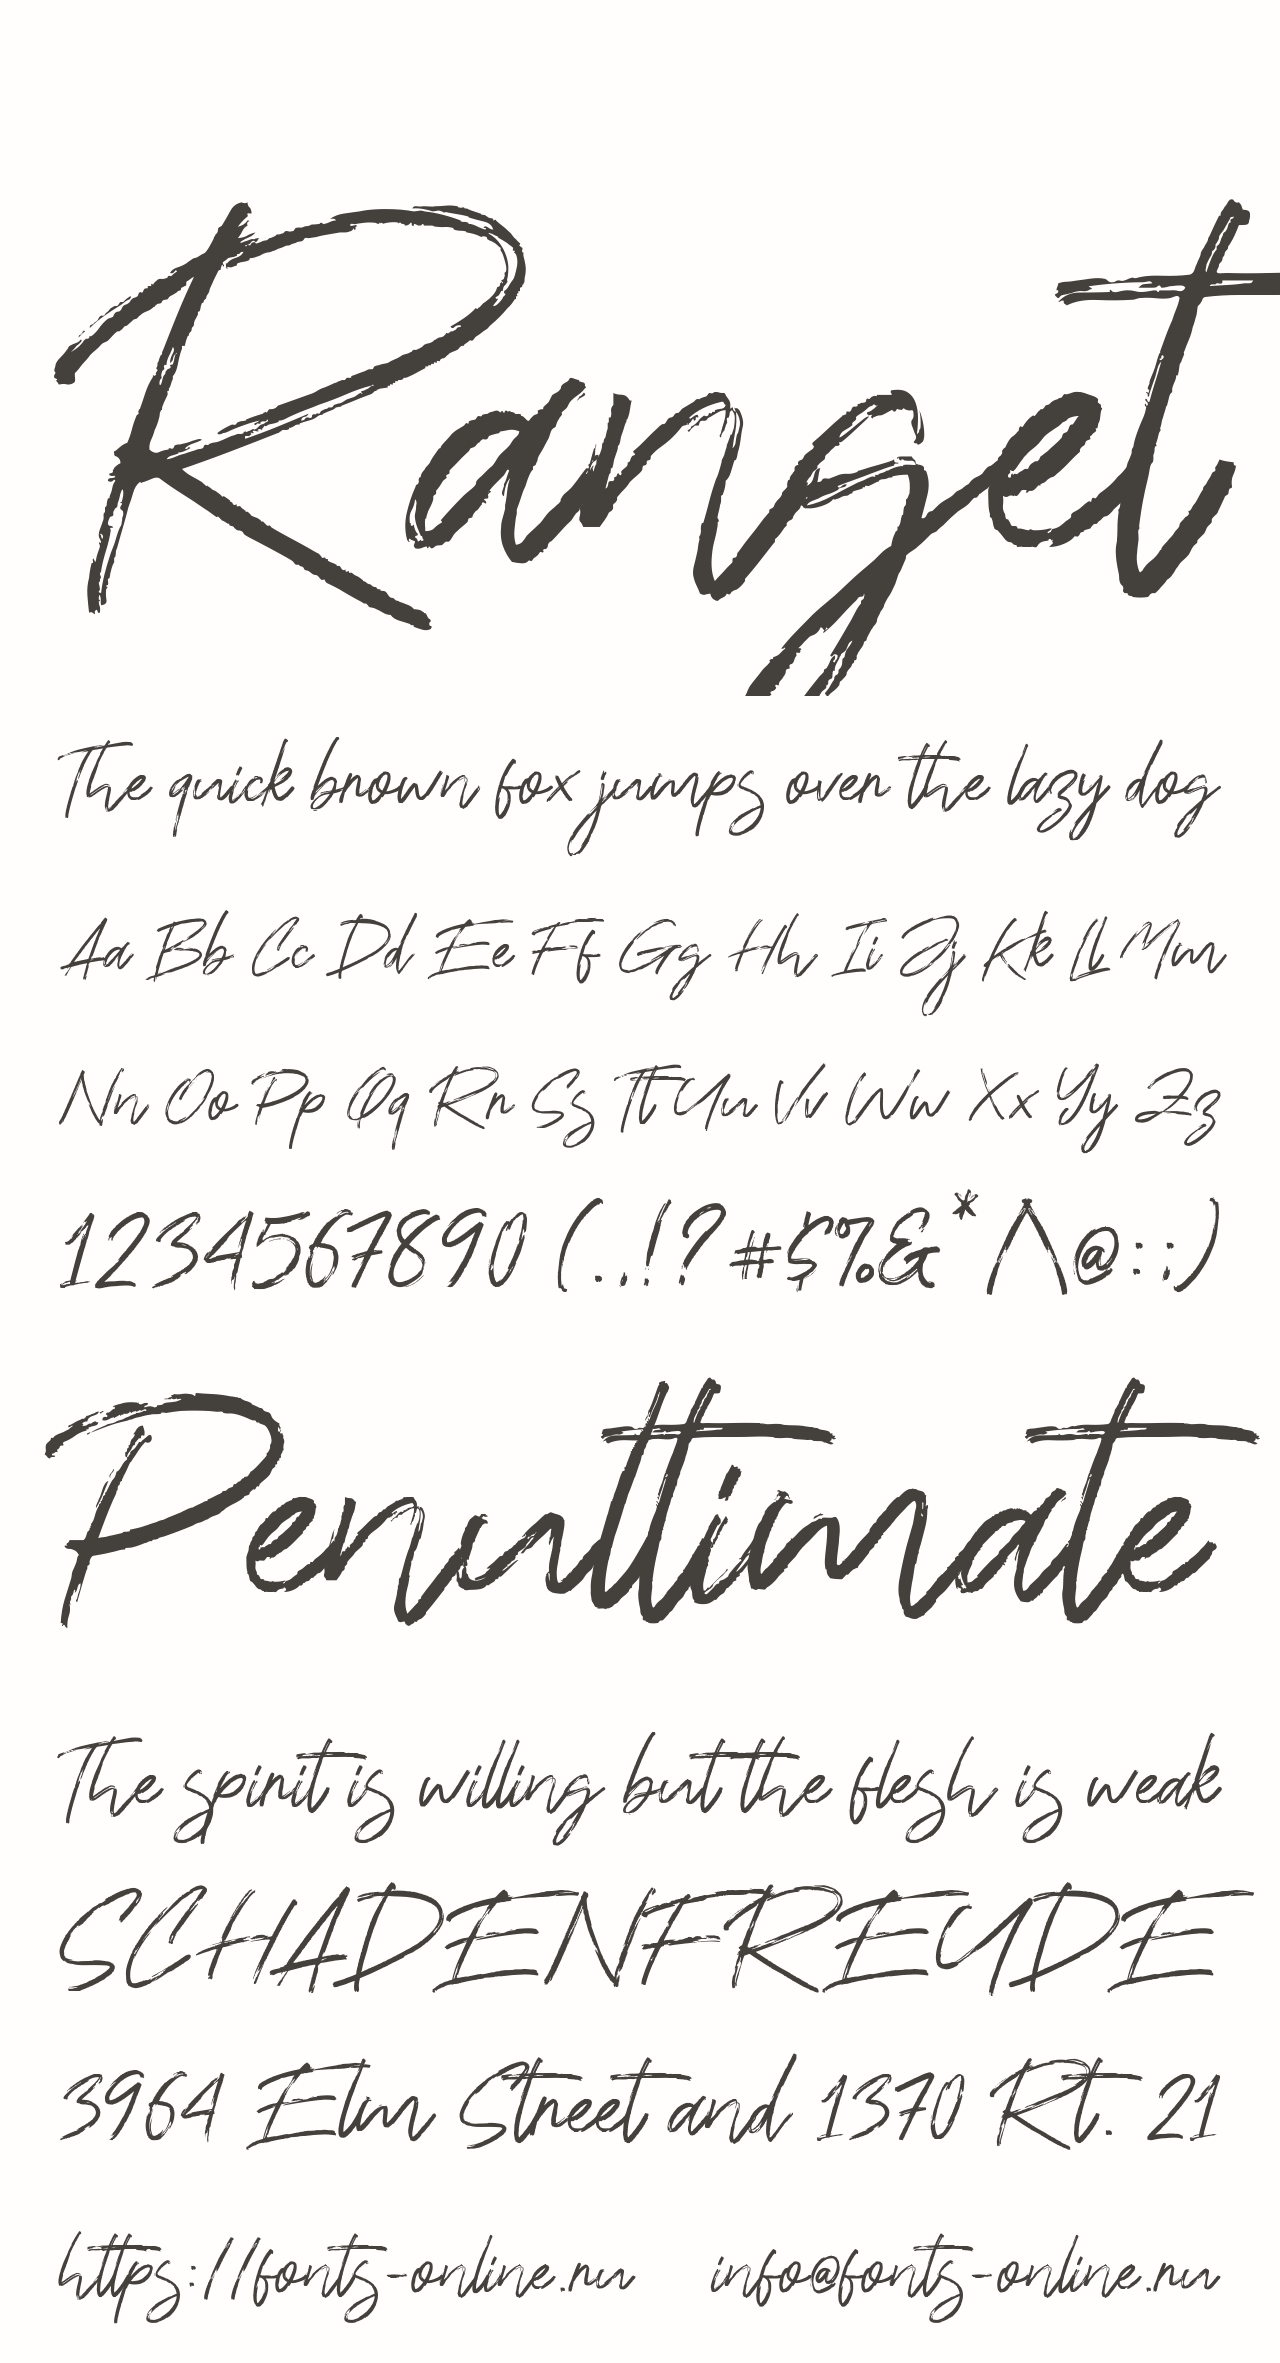 Ranget
The quick brown fox jumps over the lazy dog
Aa Bb Cc Dd Ee Ff Gg Hh Ii Jj Kk Ll Mm
Nn Oo Pp Qq Rr Ss Tt Uu Vv Ww Xx Yy Zz
1234567890 (.,!?#$%&*^@:;)
Penultimate
The spirit is willing but the flesh is weak
SCHADENFREUDE
3964 Elm Street and 1370 Rt. 21
https://fonts-online.ru info@fonts-online.ru